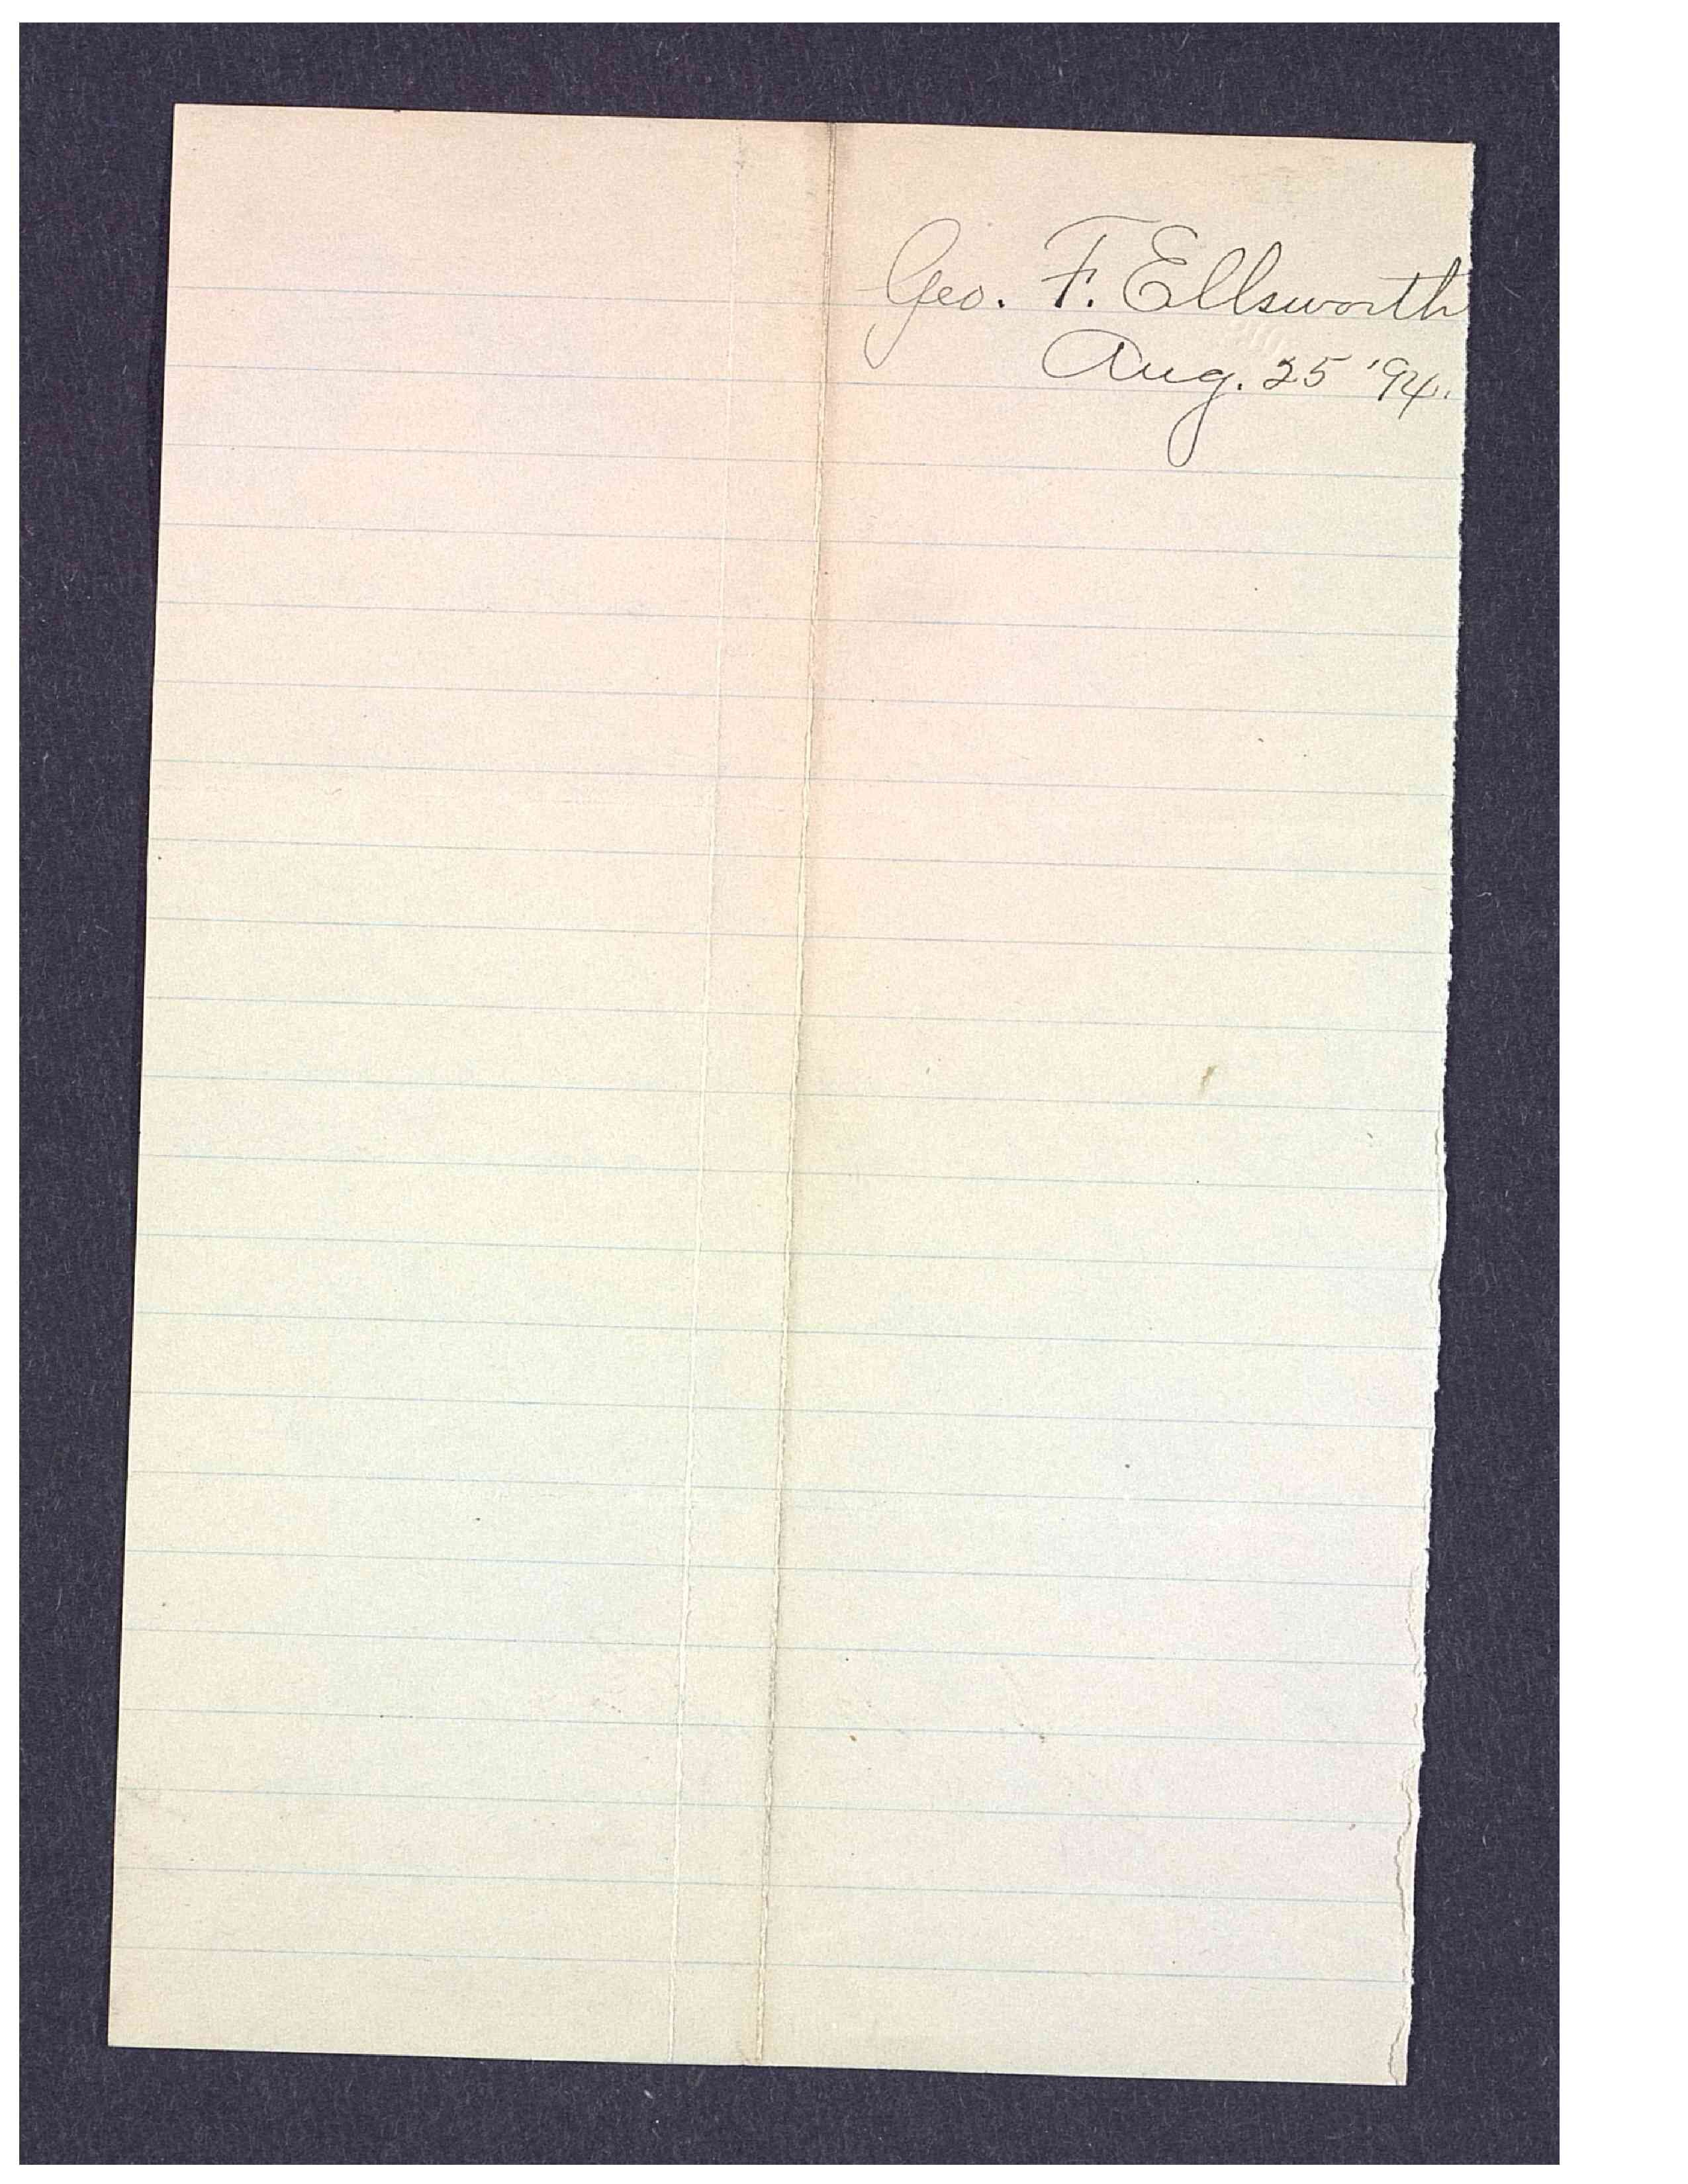 Geo. F. Ellsworth
Aug. 25 '94.